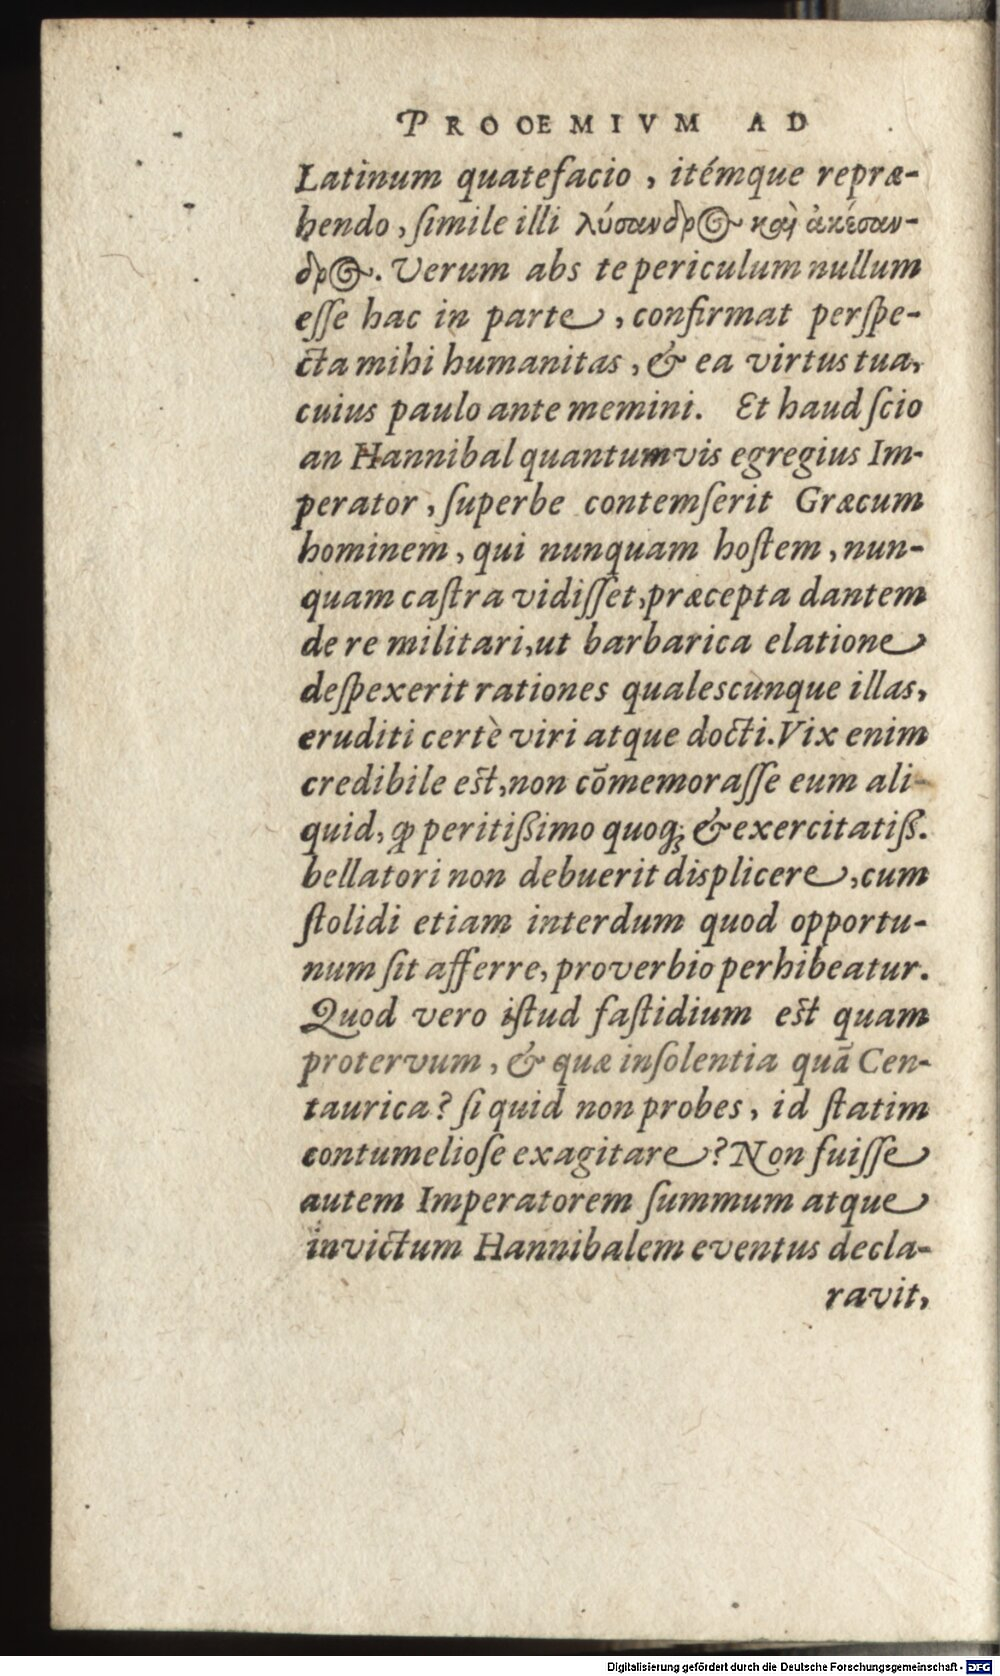 PROOEMIVM AD
Latinum quatefacio, itémque repræ-
hendo, ſimile illi λύσανδρος καὶ ἀκέσαν-
δρος. Verum abs te periculum nullum
eſſe hac in parte, confirmat perſpe-
cta mihi humanitas, & ea virtus tua,
cuius paulo ante memini. Et haud ſcio
an Hannibal quantumvis egregius Im-
perator, ſuperbe contemſerit Græcum
hominem, qui nunquam hoſtem, nun-
quam caſtra vidiſſet, præcepta dantem
de re militari, ut barbarica elatione
deſpexerit rationes qualescunque illas,
eruditi certè viri atque docti. Vix enim
credibile est, non cōmemoraſſe eum ali-
quid, ꝙ peritißimo quoqꝫ & exercitatiß.
bellatori non debuerit displicere, cum
ſtolidi etiam interdum quod opportu-
num ſit afferre, proverbio perhibeatur.
Quod vero iſtud faſtidium est quam
protervum, & quæ inſolentia quā Cen-
taurica? ſi quid non probes, id ſtatim
contumelioſe exagitare? Non fuiſſe
autem Imperatorem ſummum atque
invictum Hannibalem eventus decla-
ravit,
Digitalisierung gefördert durch die Deutsche Forschungsgemeinschaft - DFG